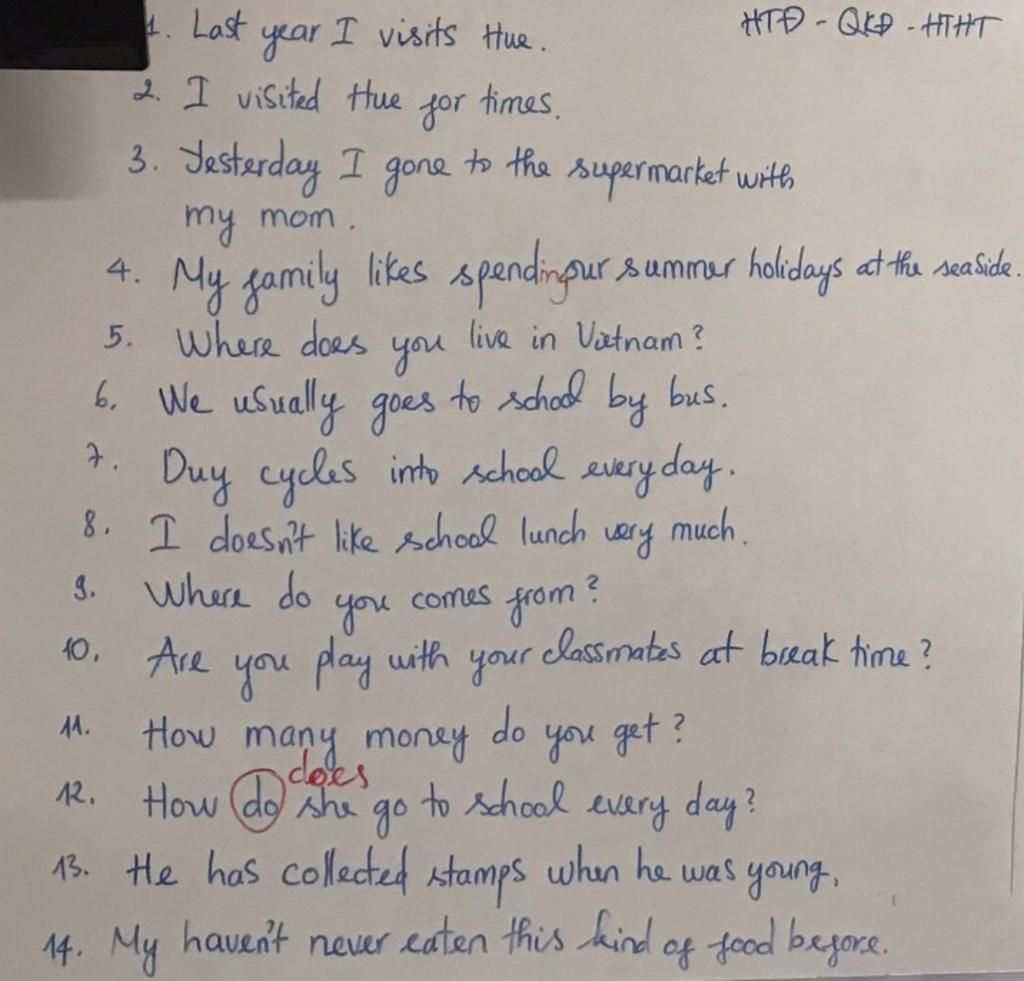 HTĐ - QKĐ - HTHT
1. Last year I visits Hue.
2. I visited Hue for times.
3. Yesterday I gone to the supermarket with
my mom.
4. My family likes spending our summer holidays at the seaside.
5. Where does you live in Vietnam?
6. We usually goes to school by bus.
7. Duy cycles into school every day.
8. I doesn't like school lunch very much.
9. Where do you comes from?
10. Are you play with your classmates at break time?
11. How many money do you get?
does
12. How do she go to school every day?
13. He has collected stamps when he was young,
14. My haven't never eaten this kind of food before.